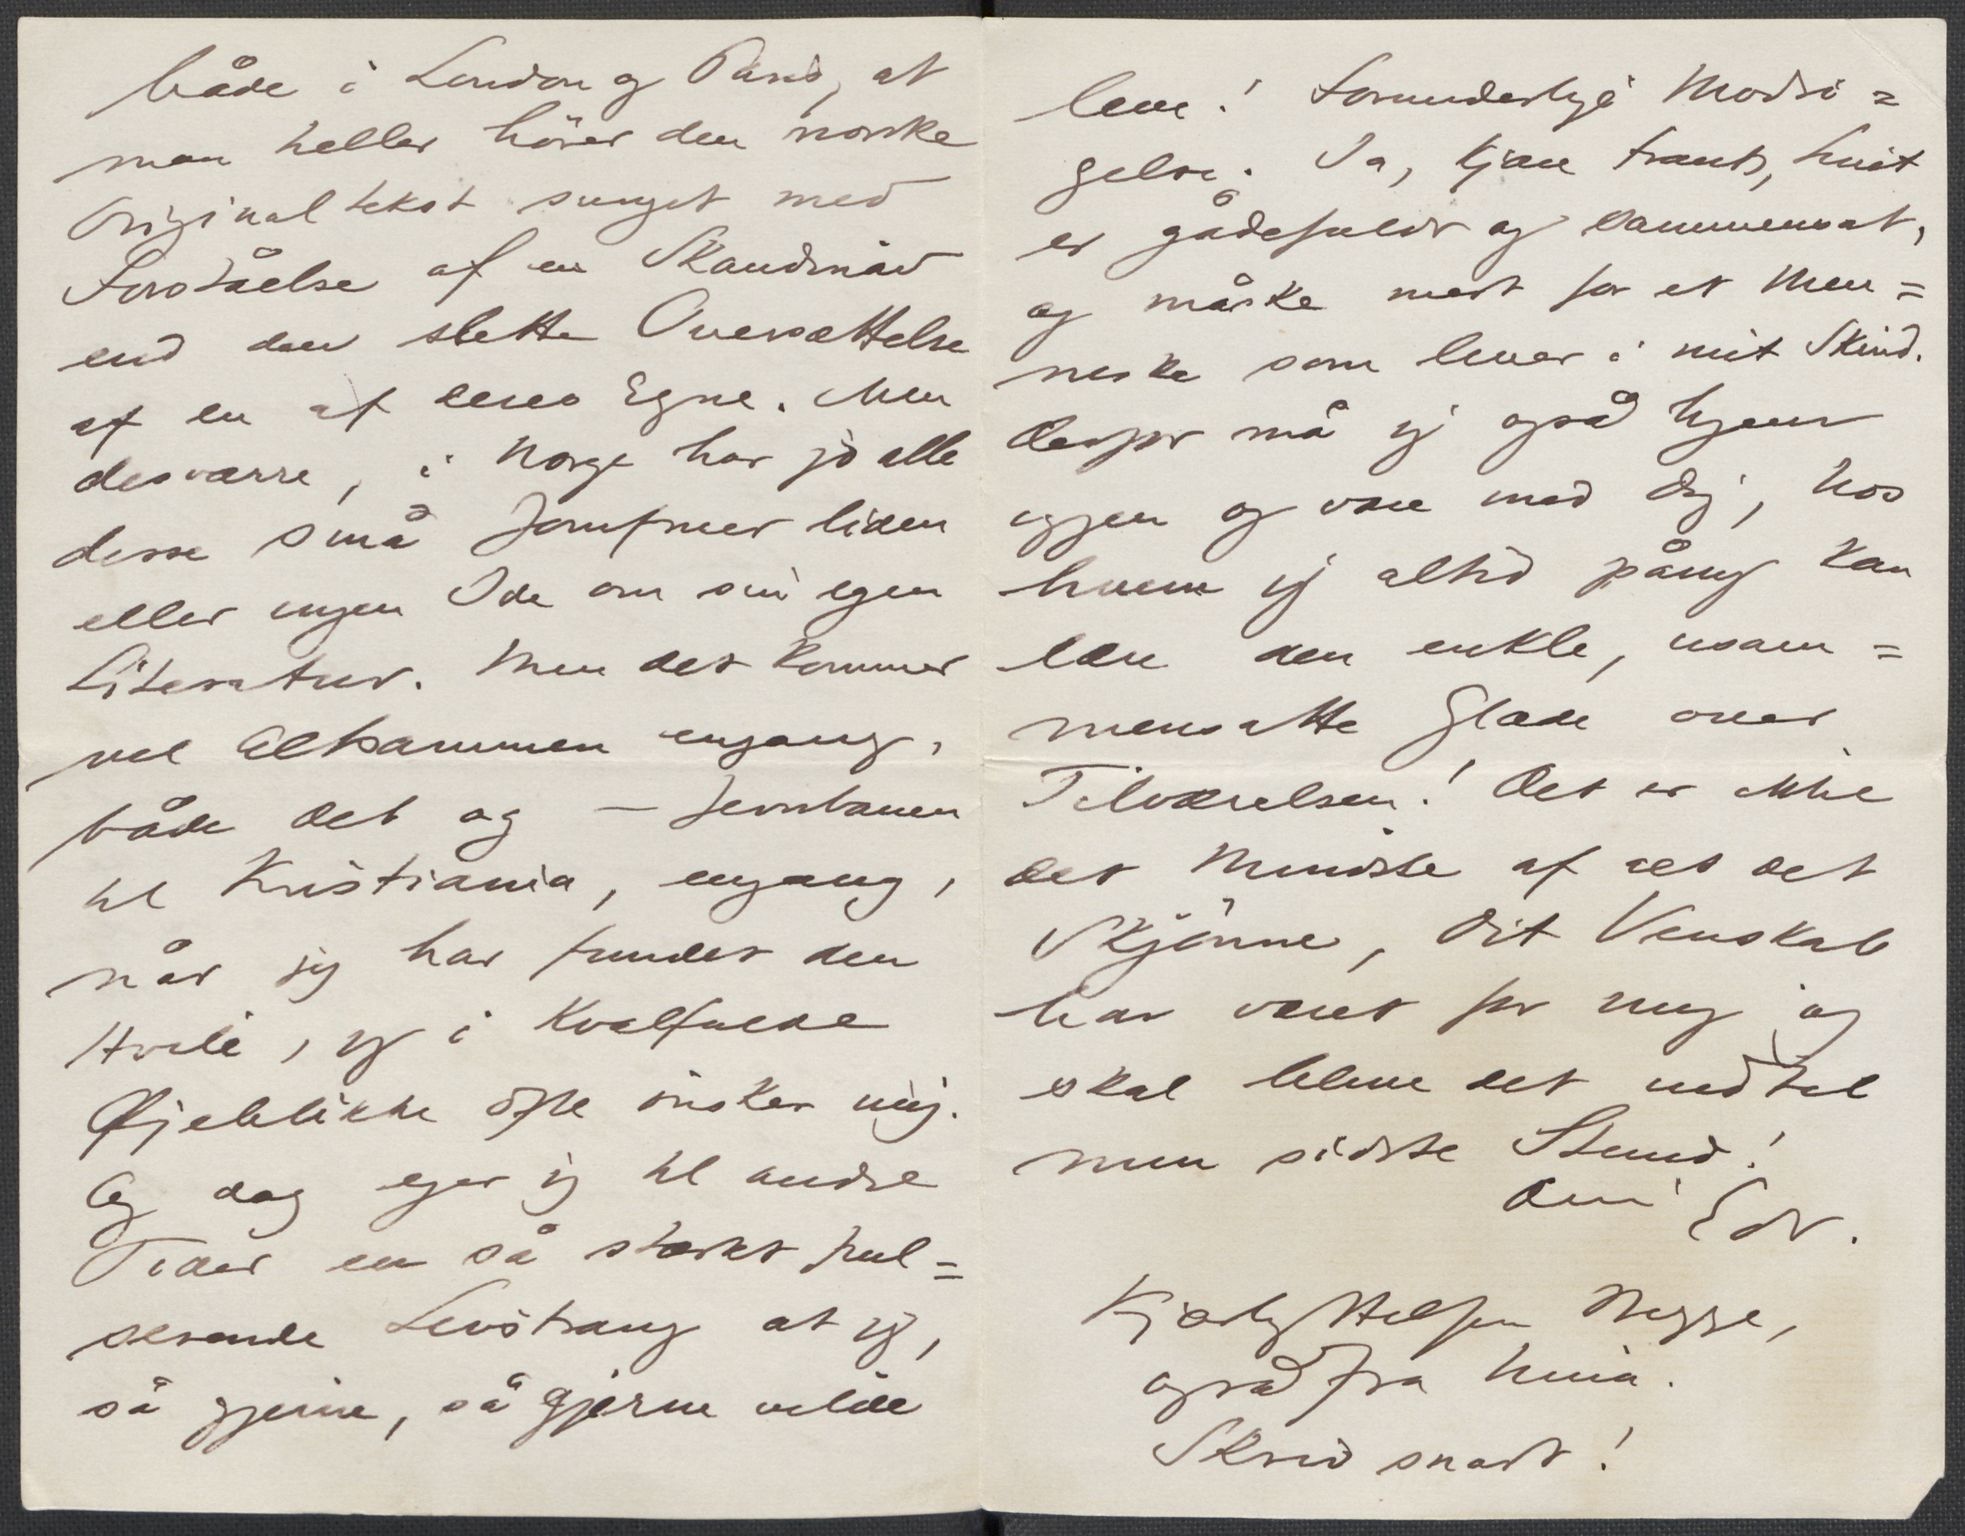 både i London og Paris, at
man heller hörer den norske
Originaltekst sunget med
Forståelse af en Skandinav
end den slette Oversættelse
af en af deres Egne. Men
desværre, i Norge har jo alle
disse små Jomfruer liden
eller ingen Ide om sin egen
Literatur. Men det kommer
vel altsammen engang,
både det og – Jernbanen
til Kristiania, engang,
når jeg har fundet den
Hvile, jeg i kvalfulde
Øjeblikke ofte önsker mig.
Og dog ejer jeg til andre
Tider en så stærkt pul=
serende Livstrang at jeg,
så gjerne, så gjerne vilde
leve! Forunderlige Modsi=
gelse. Ja, kjære Frants, Livet
er gådefuldt og sammensat,
og måske mest for et Men=
neske som lever i mit Skind.
Derfor må jeg også hjem
igjen og være med dig, hos
hvem jeg altid påny kan
lære den enkle, usam=
mensatte Glæde over
Tilværelsen! Det er ikke
det Mindste af alt det
Skjönne, Dit Venskab
har været for mig og
skal blive det indtil
min sidste Stund!
Din Edv.
Kjærlig Hilsen
også fra Nina.
Skriv snart!